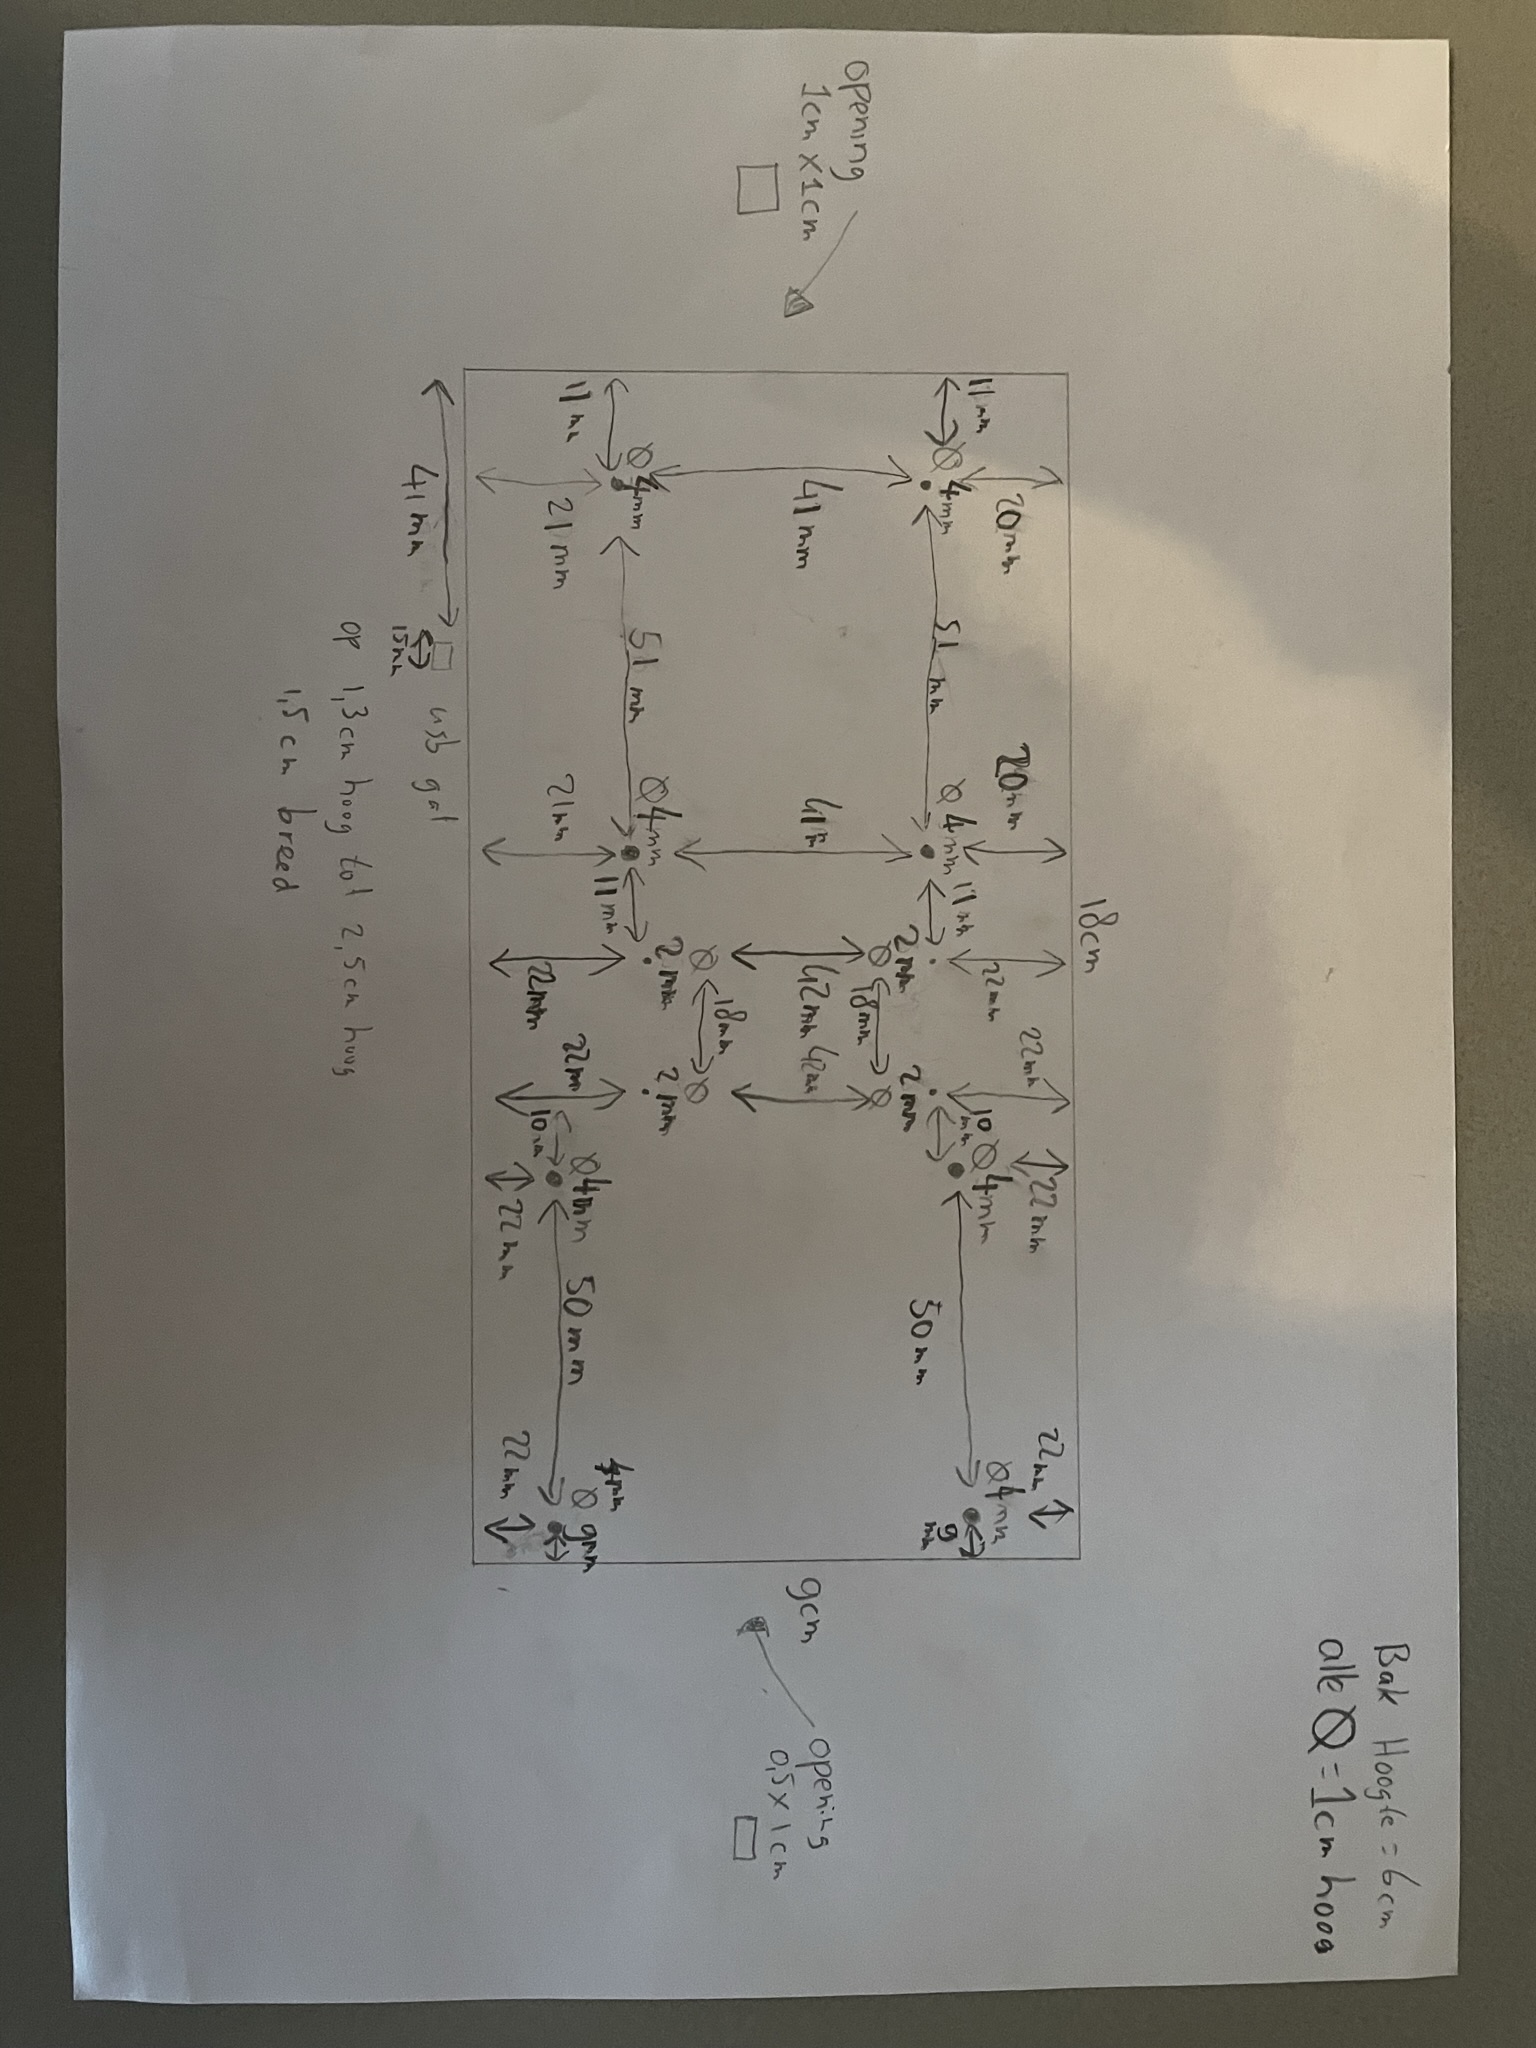 Bak Hoogte = 6cm
alle Ø = 1cm hoog
18cm
20mm
20mm
22mm
22mm
22mm
22mm
11mm
Ø 4mm
51 mm
Ø 4mm
11mm
10mm
Ø4mm
50mm
Ø4mm
9mm
2mm
2mm
Ø
18mm
Ø
opening
1cm x 1cm
41mm
41m
42mm
42mm
9cm
opening
0,5 x 1cm
18mm
Ø
Ø
2mm
2mm
Ø 4mm
51 mm
Ø4mm
11mm
4mm
Ø
9mm
11mm
21mm
21mm
22mm
22mm
10mm
Ø4mm
50mm
22mm
22mm
41mm
15mm
usb gat
op 1,3cm hoog tot 2,5cm hoog
1,5cm breed